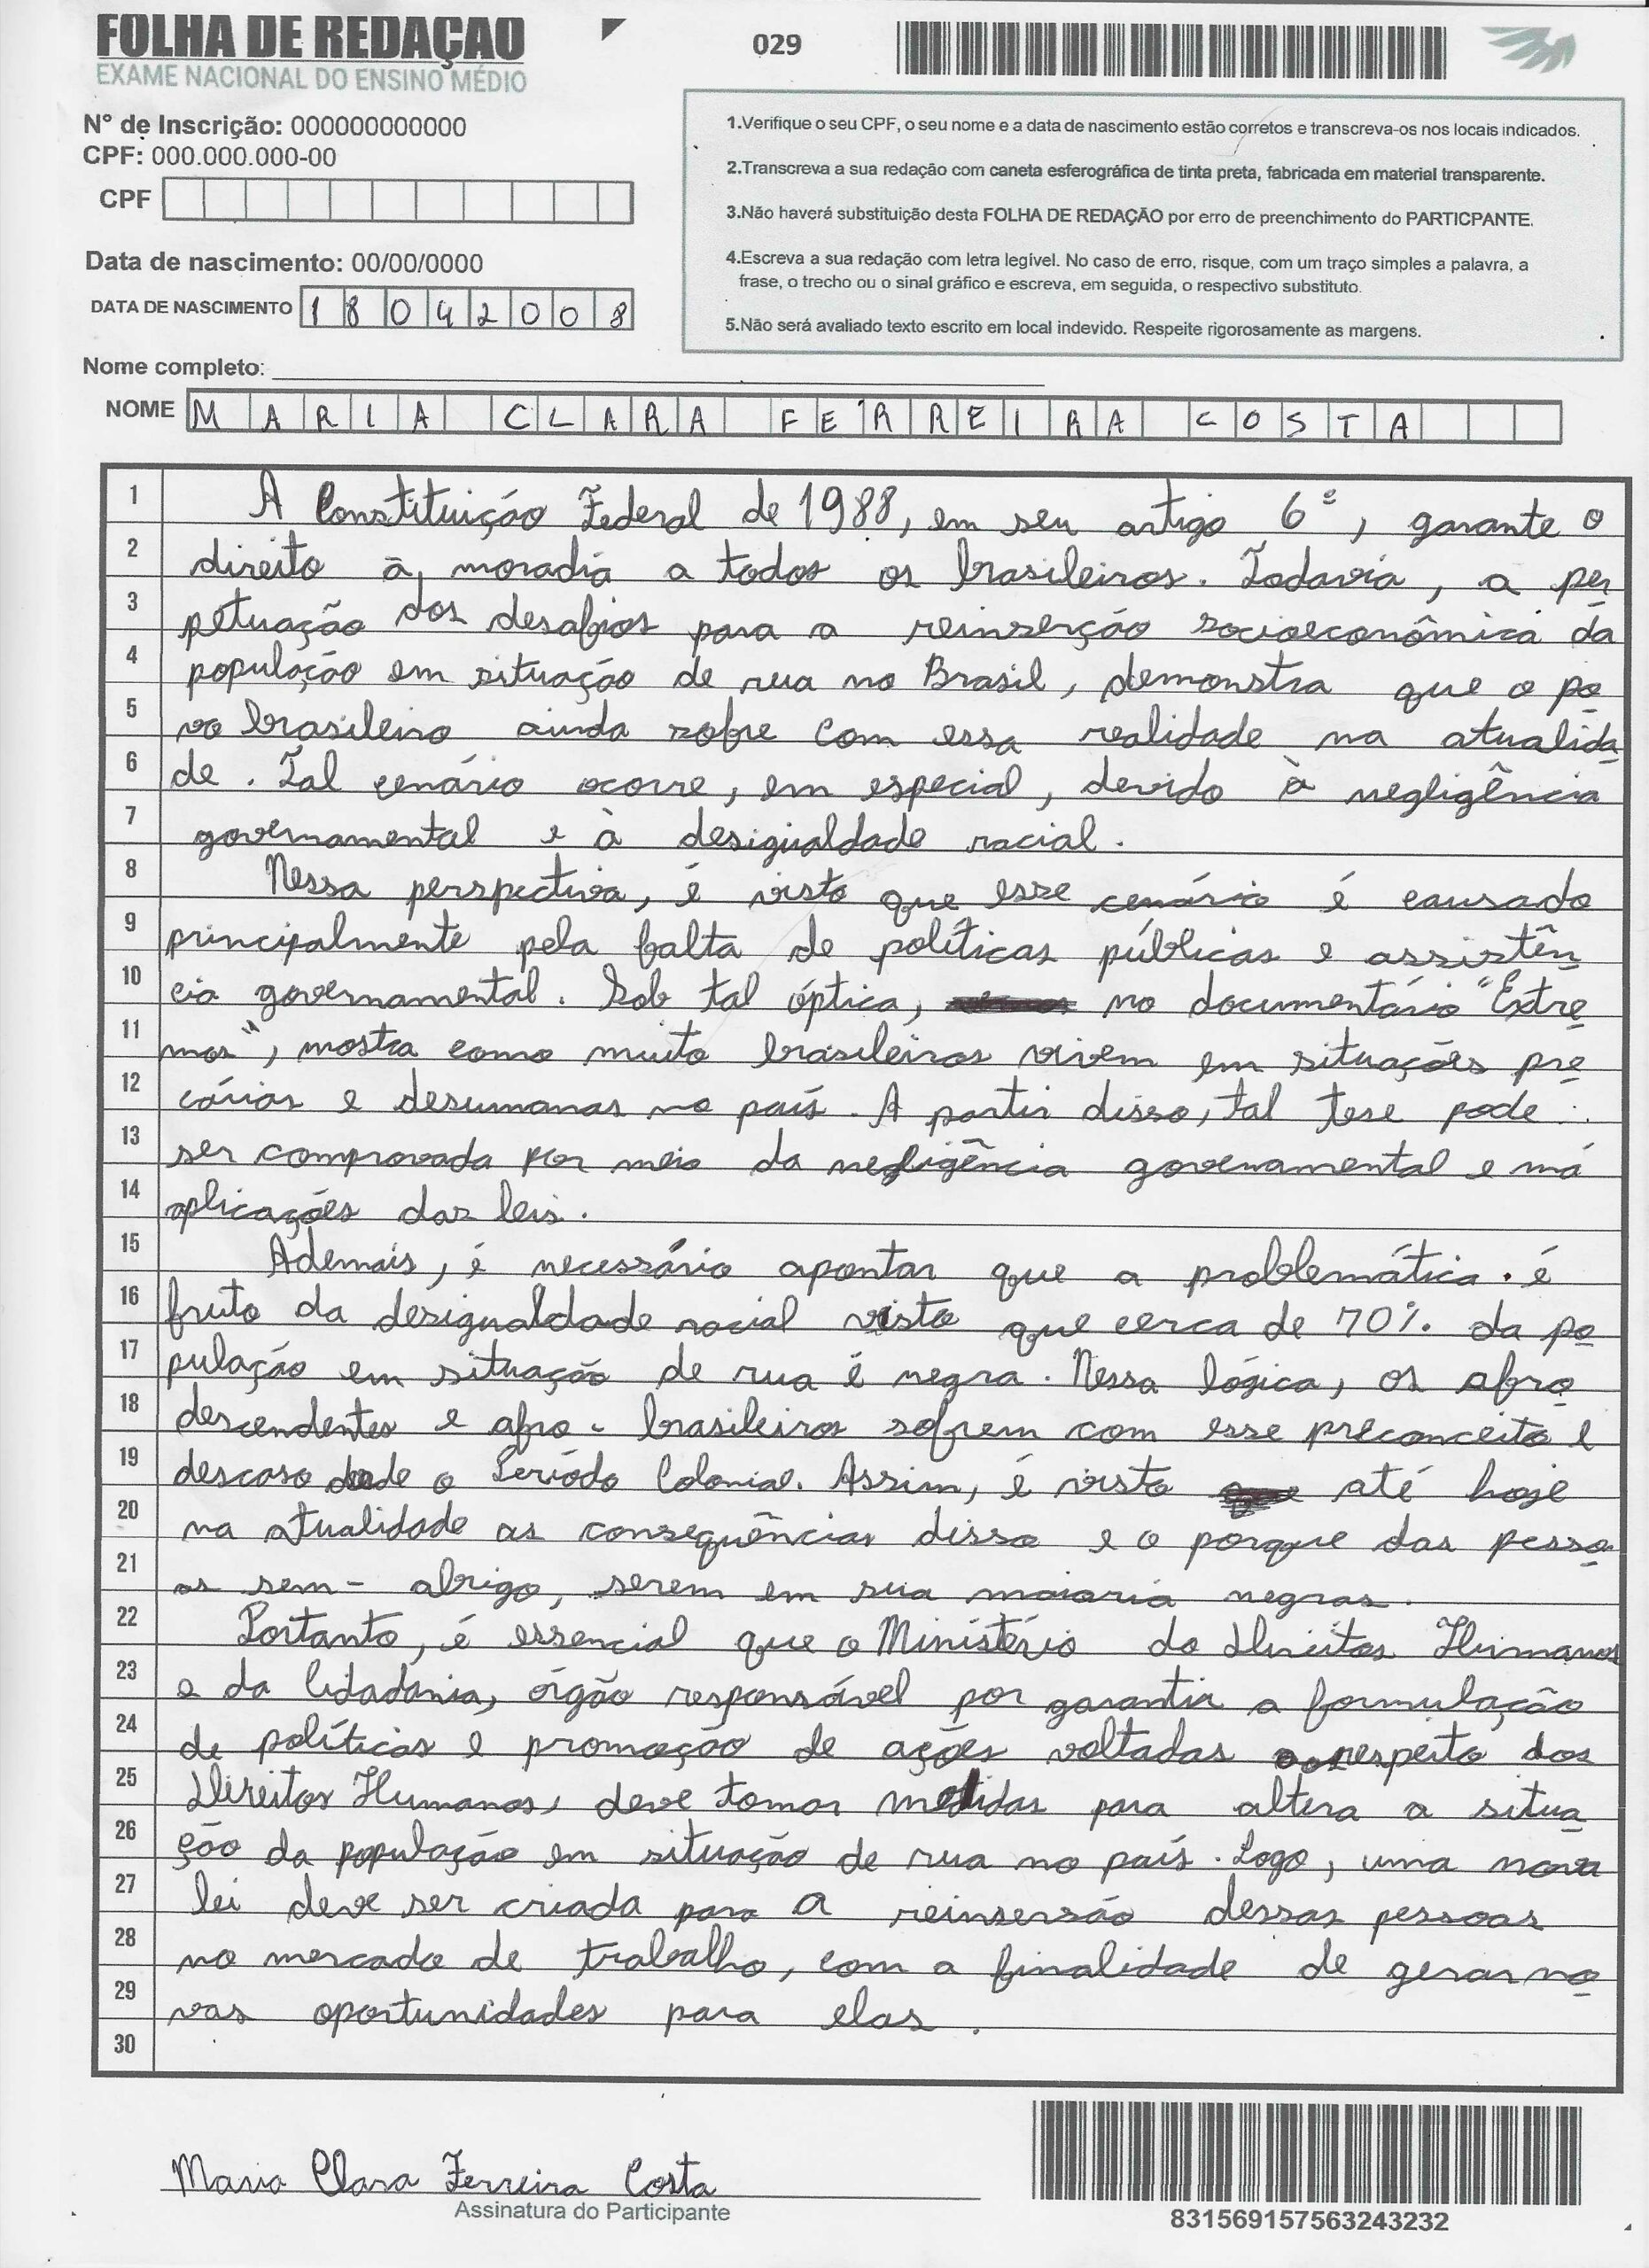 FOLHA DE REDAÇÃO
EXAME NACIONAL DO ENSINO MÉDIO
029
N° de Inscrição: 000000000000
CPF: 000.000.000-00
CPF
Data de nascimento: 00/00/0000
DATA DE NASCIMENTO 18042008
1.Verifique o seu CPF, o seu nome e a data de nascimento estão corretos e transcreva-os nos locais indicados.
2.Transcreva a sua redação com caneta esferográfica de tinta preta, fabricada em material transparente.
3.Não haverá substituição desta FOLHA DE REDAÇÃO por erro de preenchimento do PARTICPANTE.
4.Escreva a sua redação com letra legível. No caso de erro, risque, com um traço simples a palavra, a
frase, o trecho ou o sinal gráfico e escreva, em seguida, o respectivo substituto.
5.Não será avaliado texto escrito em local indevido. Respeite rigorosamente as margens.
Nome completo:
NOME MARIA CLARA FERREIRA COSTA
1 A Constituição Federal de 1988, em seu artigo 6º, garante o
2 direito à, moradia a todos os brasileiros. Todavia, a per
3 petuação dos desafios para a reinserção socioeconômica da
4 população em situação de rua no Brasil, demonstra que o po
5 vo brasileiro ainda sofre com essa realidade na atualida
6 de. Tal cenário ocorre, em especial, devido à negligência
7 governamental e à desigualdade racial.
8 Nessa perspectiva, é visto que esse cenário é causado
9 principalmente pela falta de políticas públicas e assistên
10 cia governamental. Sob tal óptica, no documentário "Extre
11 mos", mostra como muito brasileiros vivem em situações pre
12 cárias e desumanas no país. A partir disso, tal tese pode
13 ser comprovada por meio da negligência governamental e má
14 aplicações das leis.
15 Ademais, é necessário apontar que a problemática é
16 fruto da desigualdade racial visto que cerca de 70% da po
17 pulação em situação de rua é negra. Nessa lógica, os afro
18 descendentes e afro-brasileiros sofrem com esse preconceito e
19 descaso desde o Período Colonial. Assim, é visto até hoje
20 na atualidade as consequências disso e o porque das pesso
21 as sem-abrigo, serem em sua maioria negras.
22 Portanto, é essencial que o Ministério do Direitos Humanos
23 e da Cidadania, órgão responsável por garantir a formulação
24 de políticas e promoção de ações voltadas respeito dos
25 Direitos Humanos, deve tomar medidas para altera a situa
26 ção da população em situação de rua no país. Logo, uma nova
27 lei deve ser criada para a reinsersão dessas pessoas
28 no mercado de trabalho, com a finalidade de gerar no
29 vas oportunidades para elas.
30
Maria Clara Ferreira Costa
Assinatura do Participante
831569157563243232